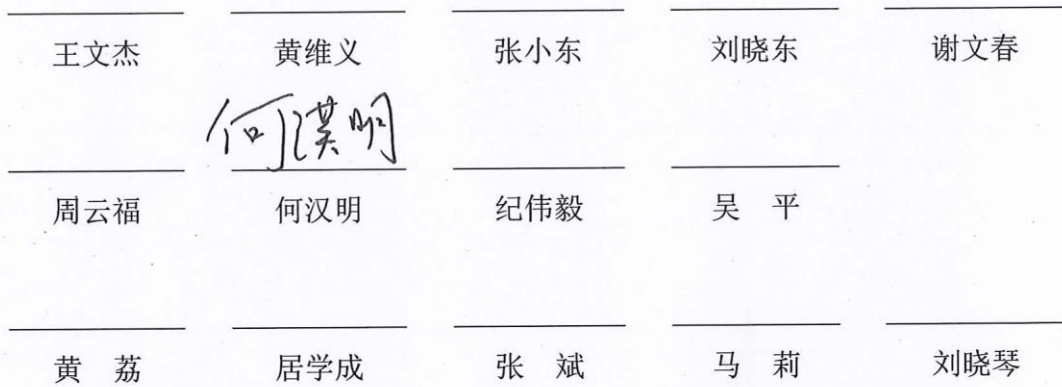 王文杰 黄维义 张小东 刘晓东 谢文春
何漢明
周云福 何汉明 纪伟毅 吴 平
黄 荔 居学成 张 斌 马 莉 刘晓琴